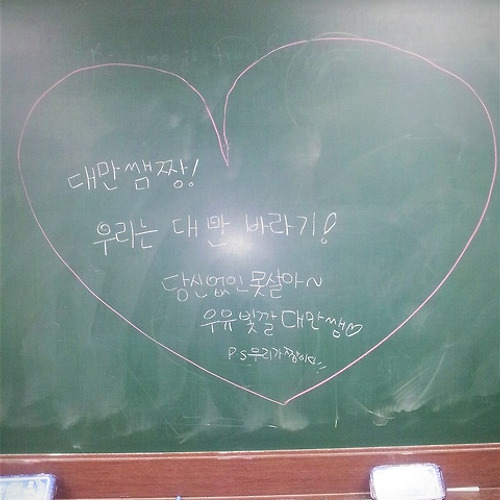 대만쌤짱!
우리는 대만 바라기!
당신없인못살아~
우유빛깔대만쌤♡
PS우리가짱이다!!